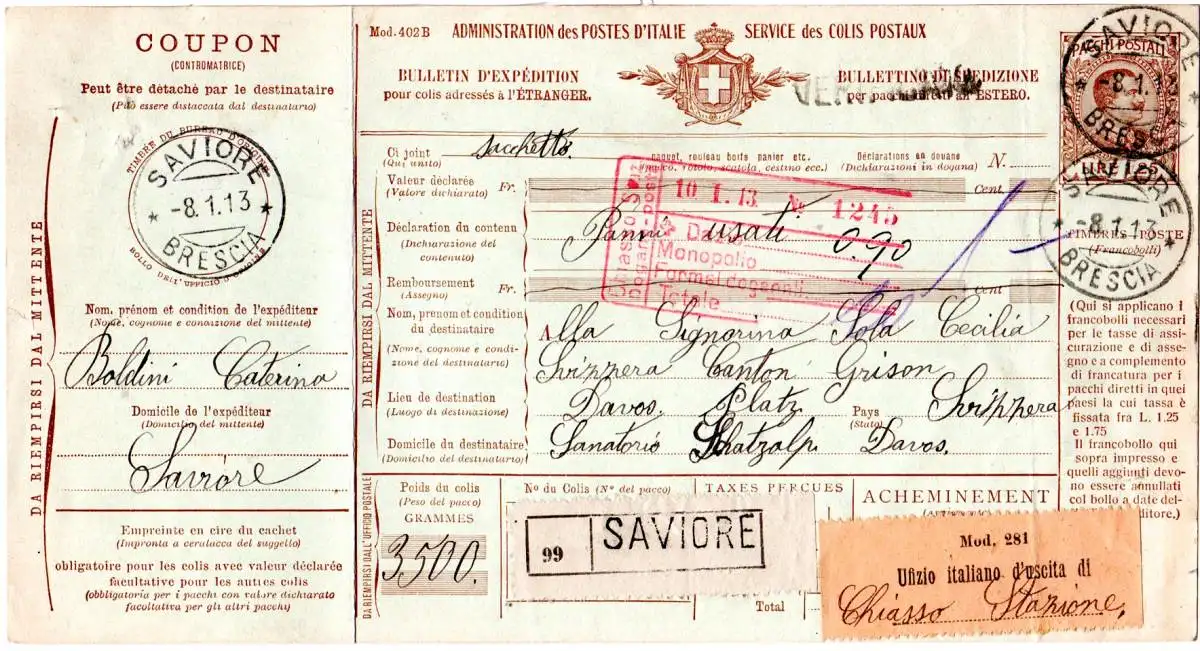 COUPON
(CONTROMATRICE)
Peut être détaché par le destinataire
(Può essere distaccata dal destinatario)
TIMBRE DU BUREAU D'ORIGINE
SAVIORE
-8.1.13
BRESCIA
BOLLO DELL'UFFICIO D'ORIGINE
DA RIEMPIRSI DAL MITTENTE
Nom, prénom et condition de l'expéditeur
(Nome, cognome e condizione del mittente)
Boldini Caterina
Domicile de l'expéditeur
(Domicilio del mittente)
Saviore
Empreinte en cire du cachet
(Impronta a ceralacca del suggello)
obligatoire pour les colis avec valeur déclarée
facultative pour les autres colis
(obbligatoria per i pacchi con valore dichiarato
facoltativa per gli altri pacchi)
Mod. 402 B
ADMINISTRATION des POSTES D'ITALIE
SERVICE des COLIS POSTAUX
BULLETIN D'EXPÉDITION
pour colis adressés à l'ÉTRANGER.
BULLETTINO DI SPEDIZIONE
per pacchi diretti all'ESTERO.
PACCHI POSTALI
LIRE 1.25
SAVIORE
-8.1.13
BRESCIA
SAVIORE
-8.1.13
BRESCIA
DA RIEMPIRSI DAL MITTENTE
Ci joint
(Qui unito)
sacchetto
paquet, rouleau boite panier etc.
(pacco, rotolo, scatola, cestino ecc.)
Déclarations en douane
(Dichiarazioni in dogana)
N.
Valeur déclarée
(Valore dichiarato)
Fr.
Cent.
10.1.13. No 1245
Dazio
Monopolio
Totale
Déclaration du contenu
(Dichiarazione del
contenuto)
Panni usati 0.90
Remboursement
(Assegno)
Fr.
Cent
TIMBRES-POSTE
(Francobolli)
Nom, prénom et condition
du destinataire
(Nome, cognome e condi-
zione del destinatario)
Alla Signorina Sola Cecilia
Svizzera Canton Grison
Lieu de destination
(Luogo di destinazione)
Davos Platz
Pays
(Stato)
Svizzera
Domicile du destinataire
(Domicilio del destinatario)
Sanatorio Schatzalp. Davos.
(Qui si applicano i
francobolli necessari
per le tasse di assi-
curazione e di asse-
gno e a complemento
di francatura per i
pacchi diretti in quei
paesi la cui tassa è
fissata fra L. 1.25
e 1.75
Il francobollo qui
sopra impresso e
quelli aggiunti devo-
no essere annullati
col bollo a date del-
DA RIEMPIRSI DALL'UFFIZIO POSTALE
Poids du colis
(Peso del pacco)
GRAMMES
3500.
No du Colis (No del pacco)
99
SAVIORE
TAXES PERÇUES
Total
ACHEMINEMENT
Mod. 281
Ufizio italiano d'uscita di
Chiasso Stazione,